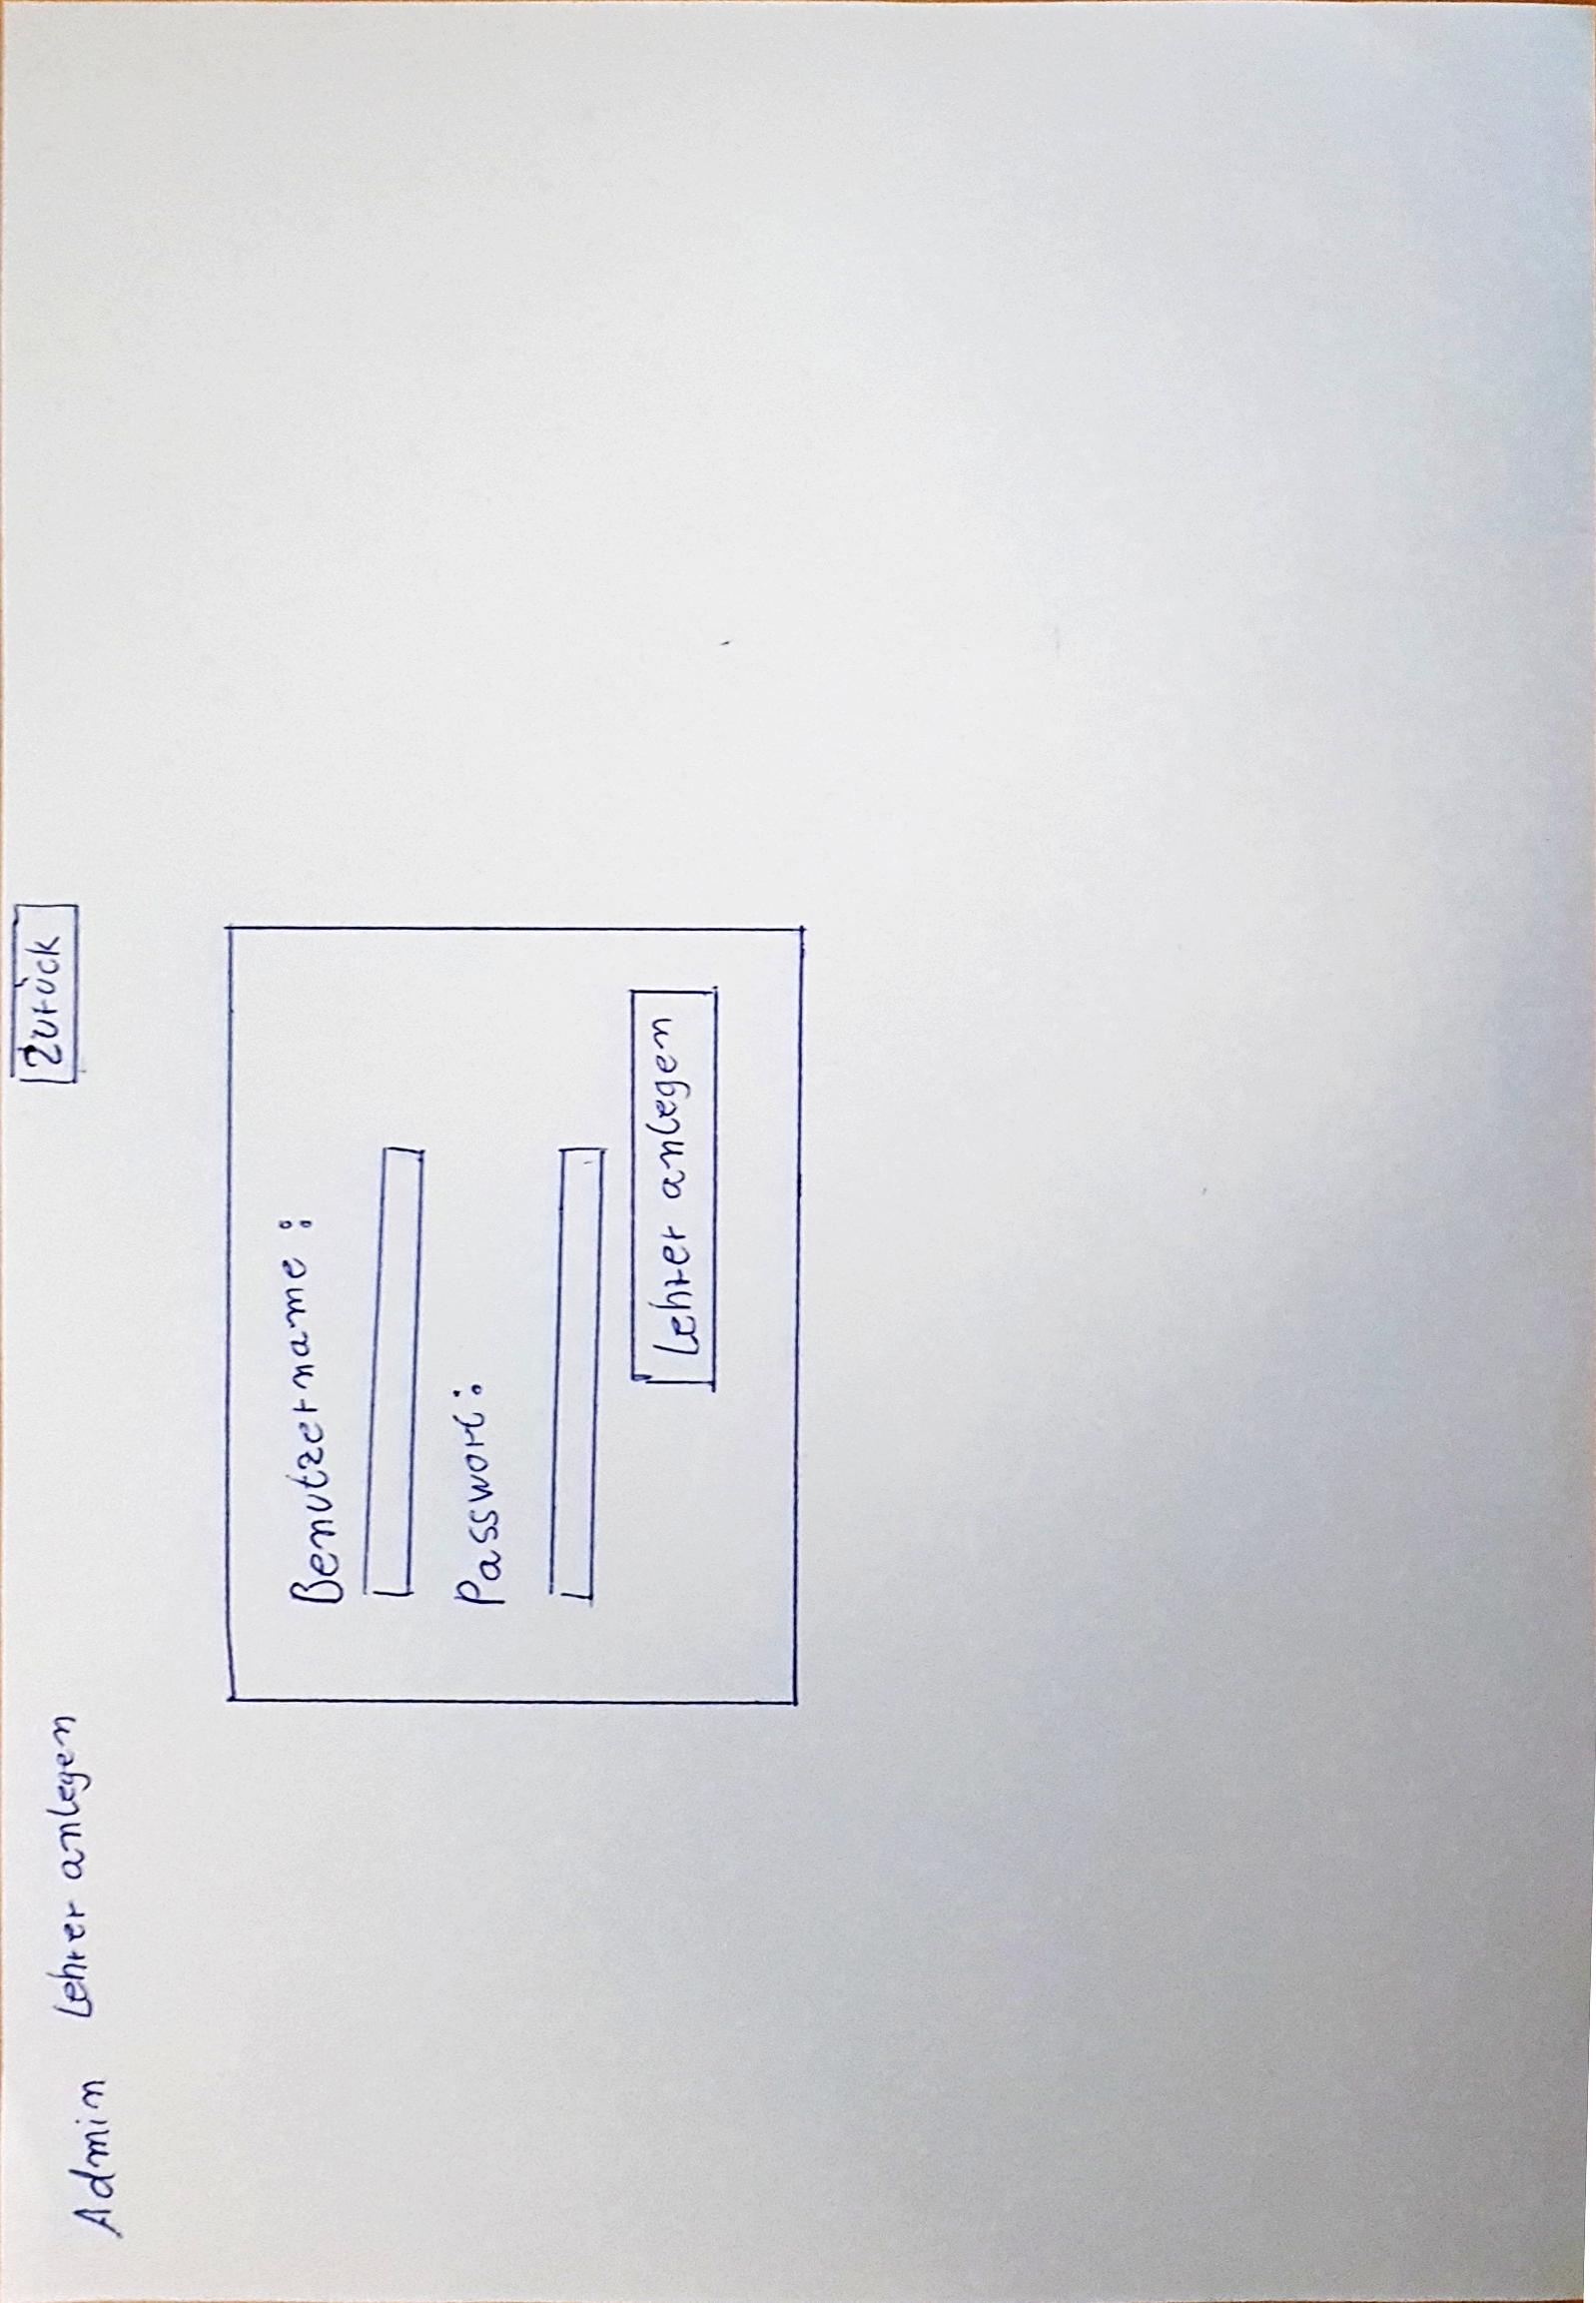 Admin Lehrer anlegen
Zurück
Benutzername:
Passwort:
Lehrer anlegen